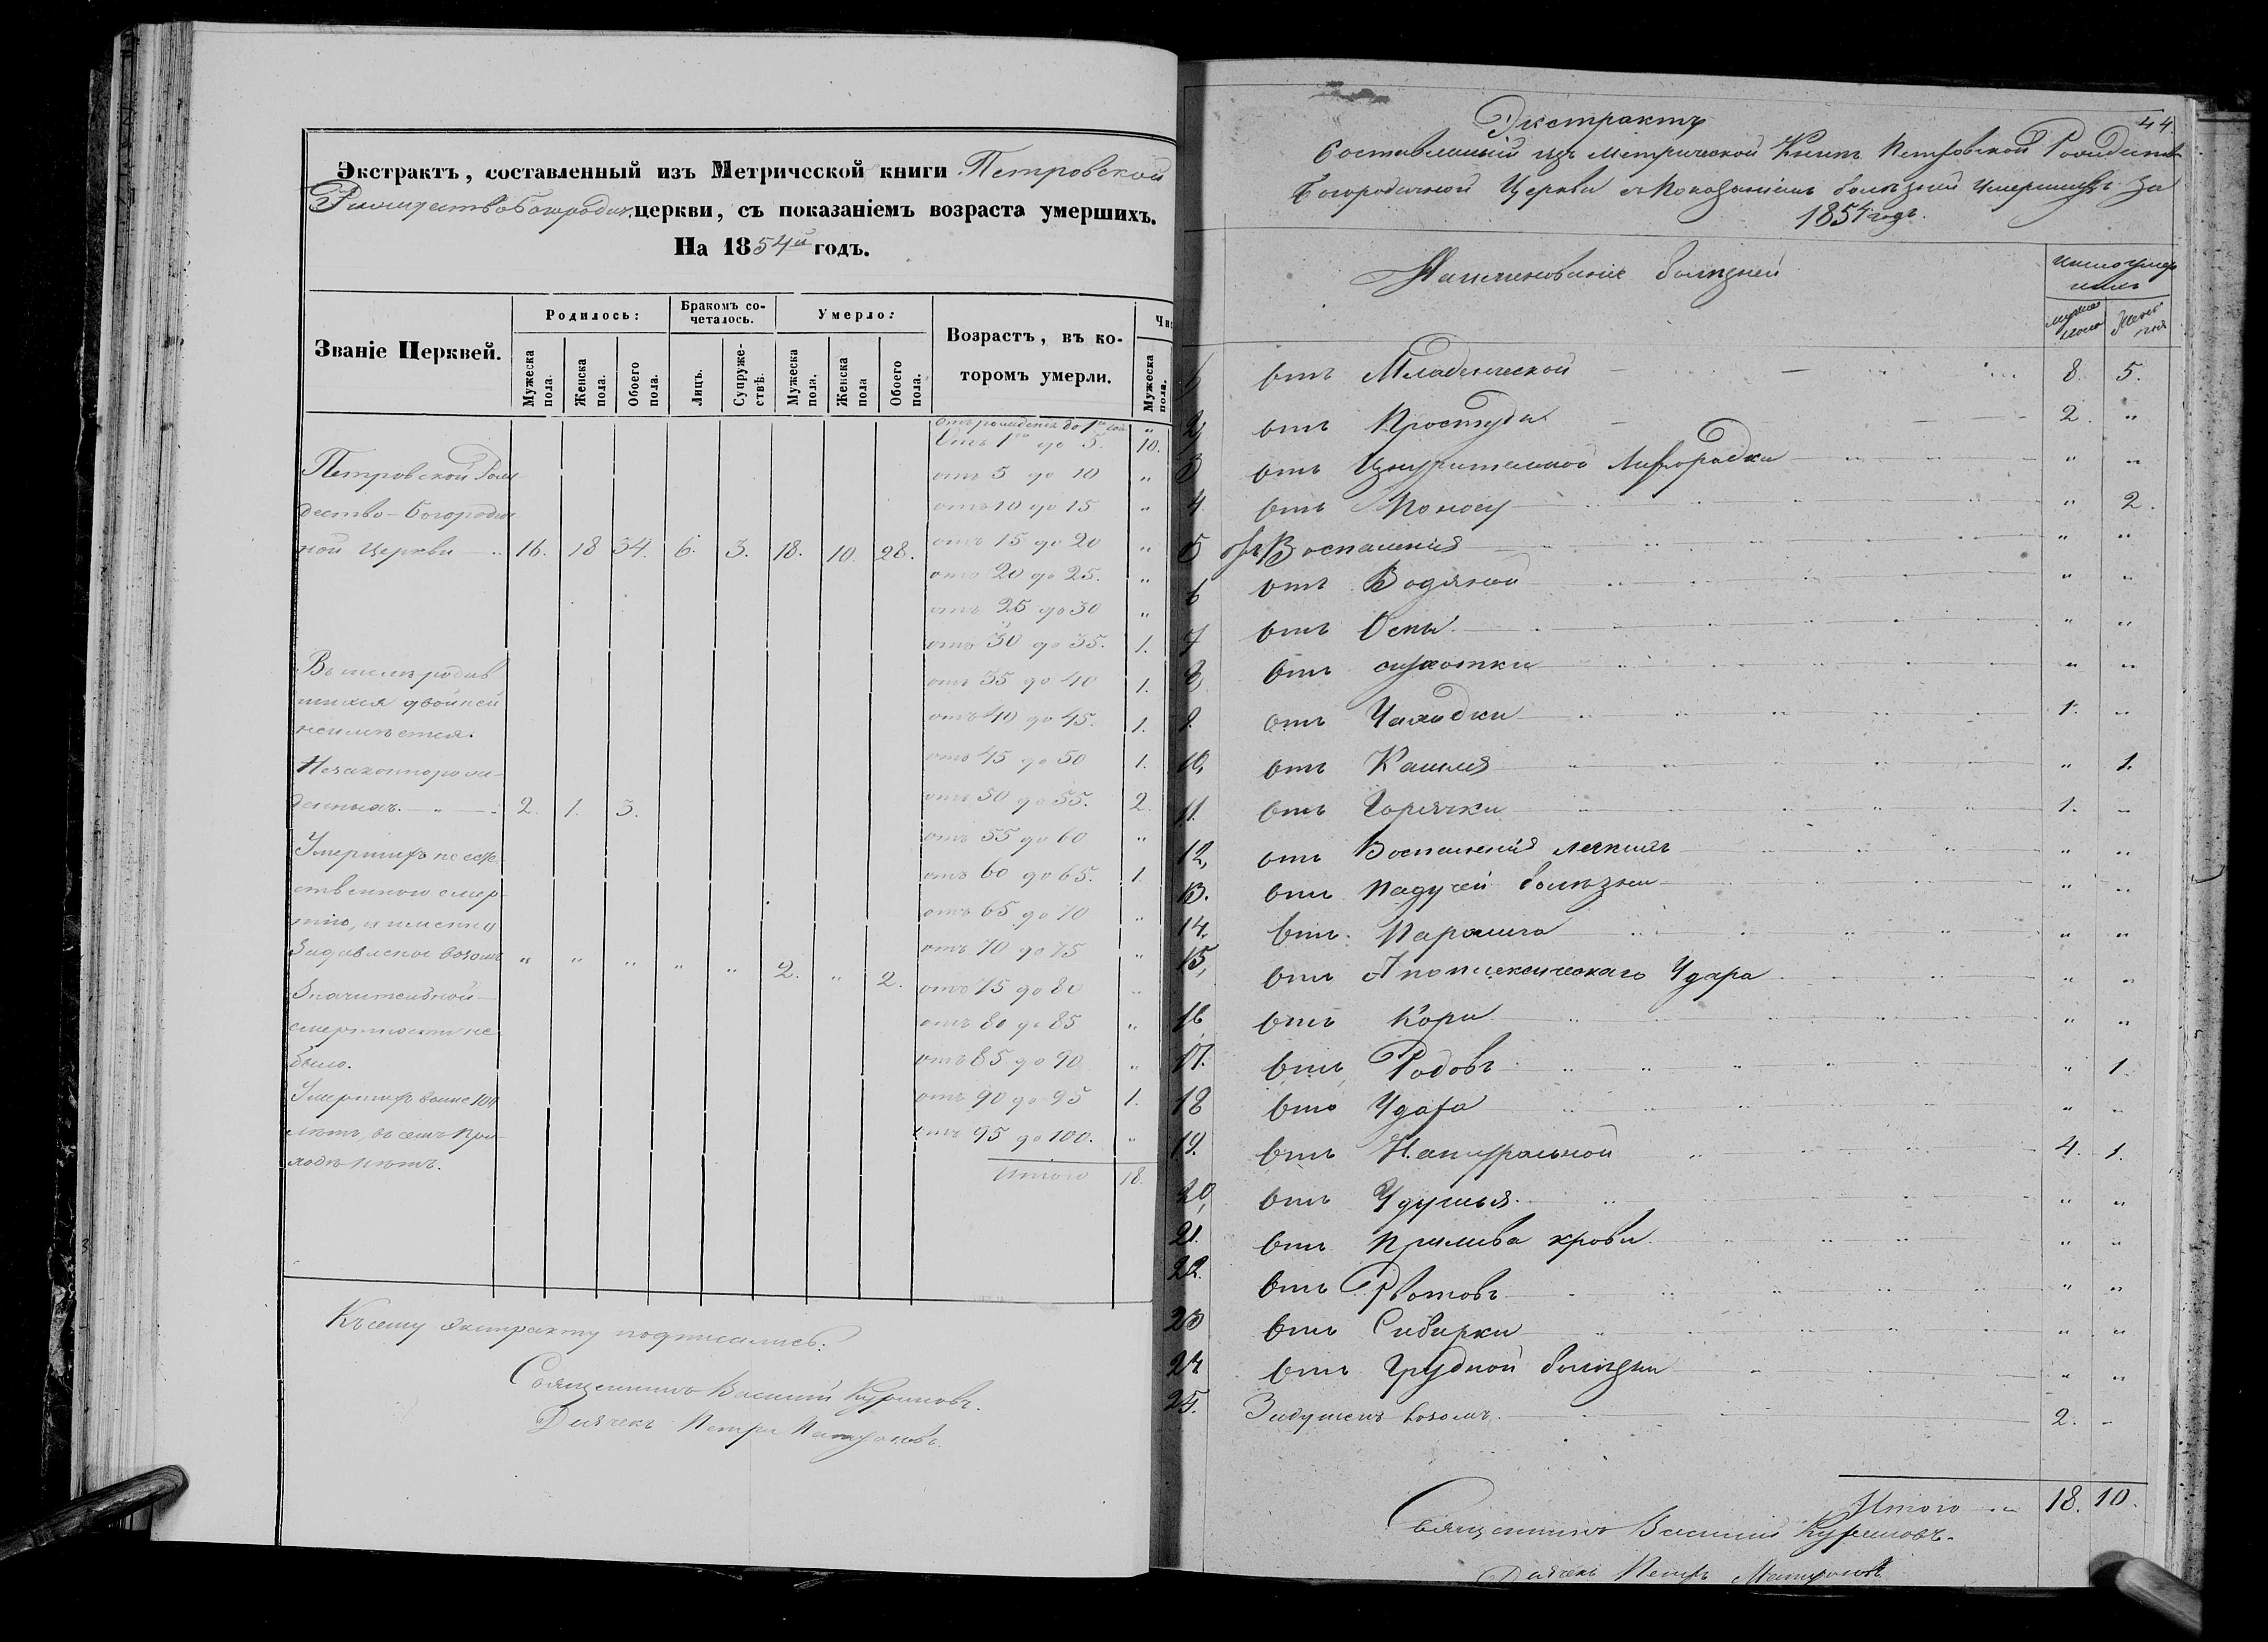 Экстрактъ, составленный изъ Метрической книги Петровской
Рождество Богородич. церкви, съ показаніемъ возраста умершихъ.
На 1854й годъ.
Званіе Церквей.
Родилось:
Мужеска пола.
Женска пола.
Обоего пола.
Бракомъ сочеталось.
Лицъ.
Супружествъ.
Умерло:
Мужеска пола.
Женска пола
Обоего пола.
Возрастъ, въ ко-
торомъ умерли.
Чис
Мужеска пола.
отъ рожденія до 1го "
Отъ 1го до 5. 10.
отъ 5 до 10 "
отъ 10 до 15 "
отъ 15 до 20 "
отъ 20 до 25. "
отъ 25 до 30 "
отъ 30 до 35. 1.
отъ 35 до 40 1.
отъ 40 до 45. 1.
отъ 45 до 50 1.
отъ 50 до 55. 2.
отъ 55 до 60 "
отъ 60 до 65. 1.
отъ 65 до 70 "
отъ 70 до 75 "
отъ 75 до 80 "
отъ 80 до 85 "
отъ 85 до 90 "
отъ 90 до 95 1.
отъ 95 до 100. "
Итого 18.
Петровской Рож
дество-Богородич
ной Церкви 16. 18 34. 6. 3. 18. 10. 28.
Въ числѣ родив
шихся двойней
неимѣется.
Незаконнорож-
денныхъ. 2. 1. 3.
Умершихъ не есте
ственною смер
тію, и именно
Задавленою возомъ " " " " " 2. " 2.
Значительной
смертности не
было.
Умершихъ болие 100
лѣтъ, въ семъ При
ходѣ нѣтъ.
Къ сему экстракту подписались:
Священникъ Василій
Дьячекъ Петръ
44.
Экстрактъ
Составленный изъ Метрической Книги Петровской Рождество
Богородичной Церкви с показаніемъ болѣзней Умершихъ За
1854 годъ.
Наименованіе болѣзней
число умер
шихъ
мужес пола
Женс пола
1, отъ Младенческой 8. 5.
2, отъ Простуды 2. "
3 отъ Изнурительной Лихорадки " "
4. отъ Поносу " 2.
5 отъ Воспаленія " "
6 отъ Водяной " "
7 отъ Оспы " "
8, отъ сухотки " "
9. отъ Чаходки 1. "
10, отъ Кашля " 1.
11. отъ Горячки 1. "
12, отъ Воспаленія легкихъ " "
13. отъ Падучей болѣзни " "
14. отъ Паралича " "
15, отъ Апоплексическаго Удара " "
16 отъ Кори " "
17. отъ Родовъ " 1.
18 отъ Удара " "
19. отъ Натуральной 4. 1.
20, отъ Удушья " "
21. отъ Прилива крови " "
22. отъ Рвотовъ " "
23 отъ Сибирки " "
24 отъ Грудной болѣзни " "
25. Задушенъ возомъ. 2. "
Итого 18. 10.
Священникъ Василій
Дьячекъ Петръ